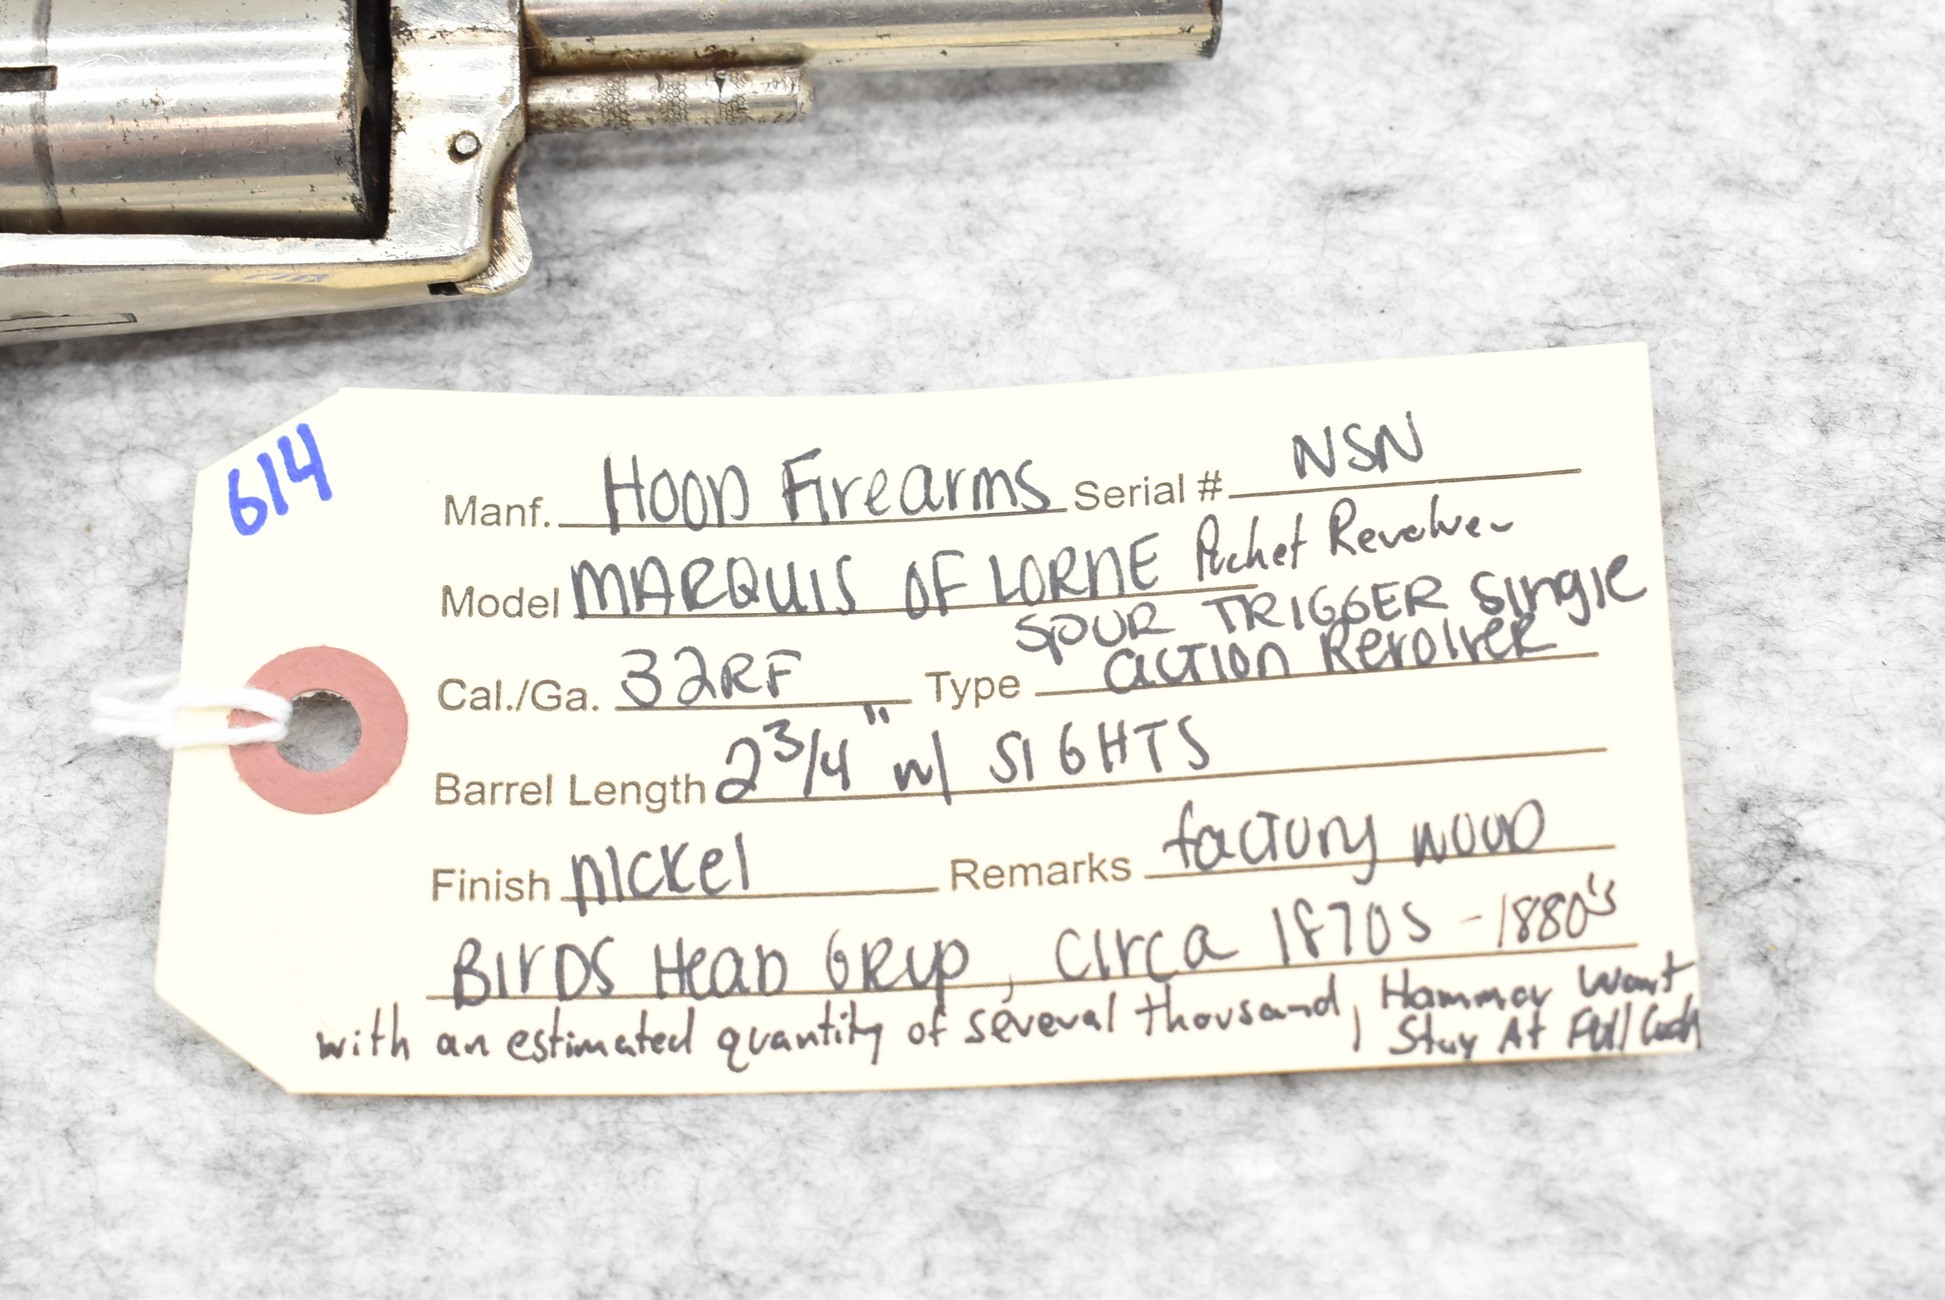 614
Manf. HOOD Firearms Serial # NSN
Model MARQUIS OF LORNE Pocket Revolver
SPUR TRIGGER Single
Cal./Ga. 32RF Type action Revolver
Barrel Length 2 3/4" w/ SIGHTS
Finish nickel Remarks factory wood
BIrDS HeaD GRip, circa 1870s - 1880's
with an estimated quantity of several thousand, Hammer Wont
Stay At Full Cock